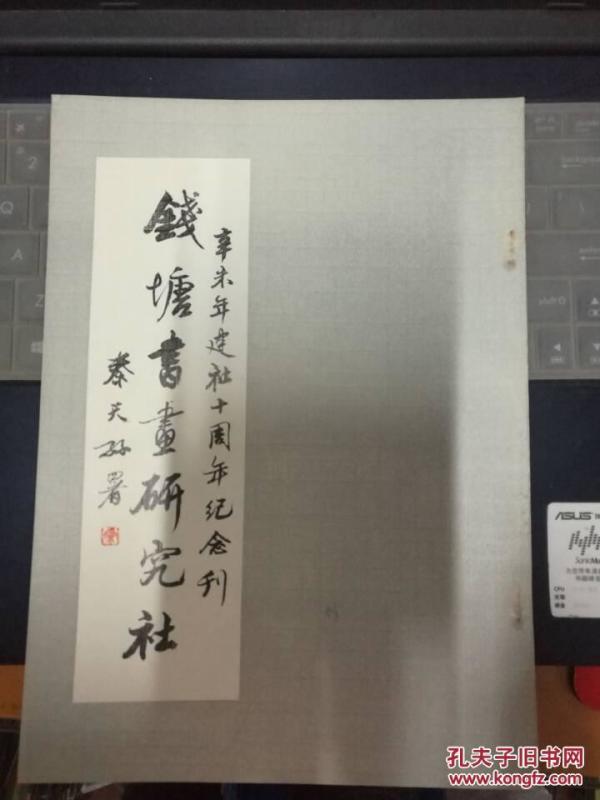 辛未年建社十周年纪念刊
錢塘書畫研究社
秦天孙署
ASUS
SonicMa
CPU
孔夫子旧书网
www.kongfz.com